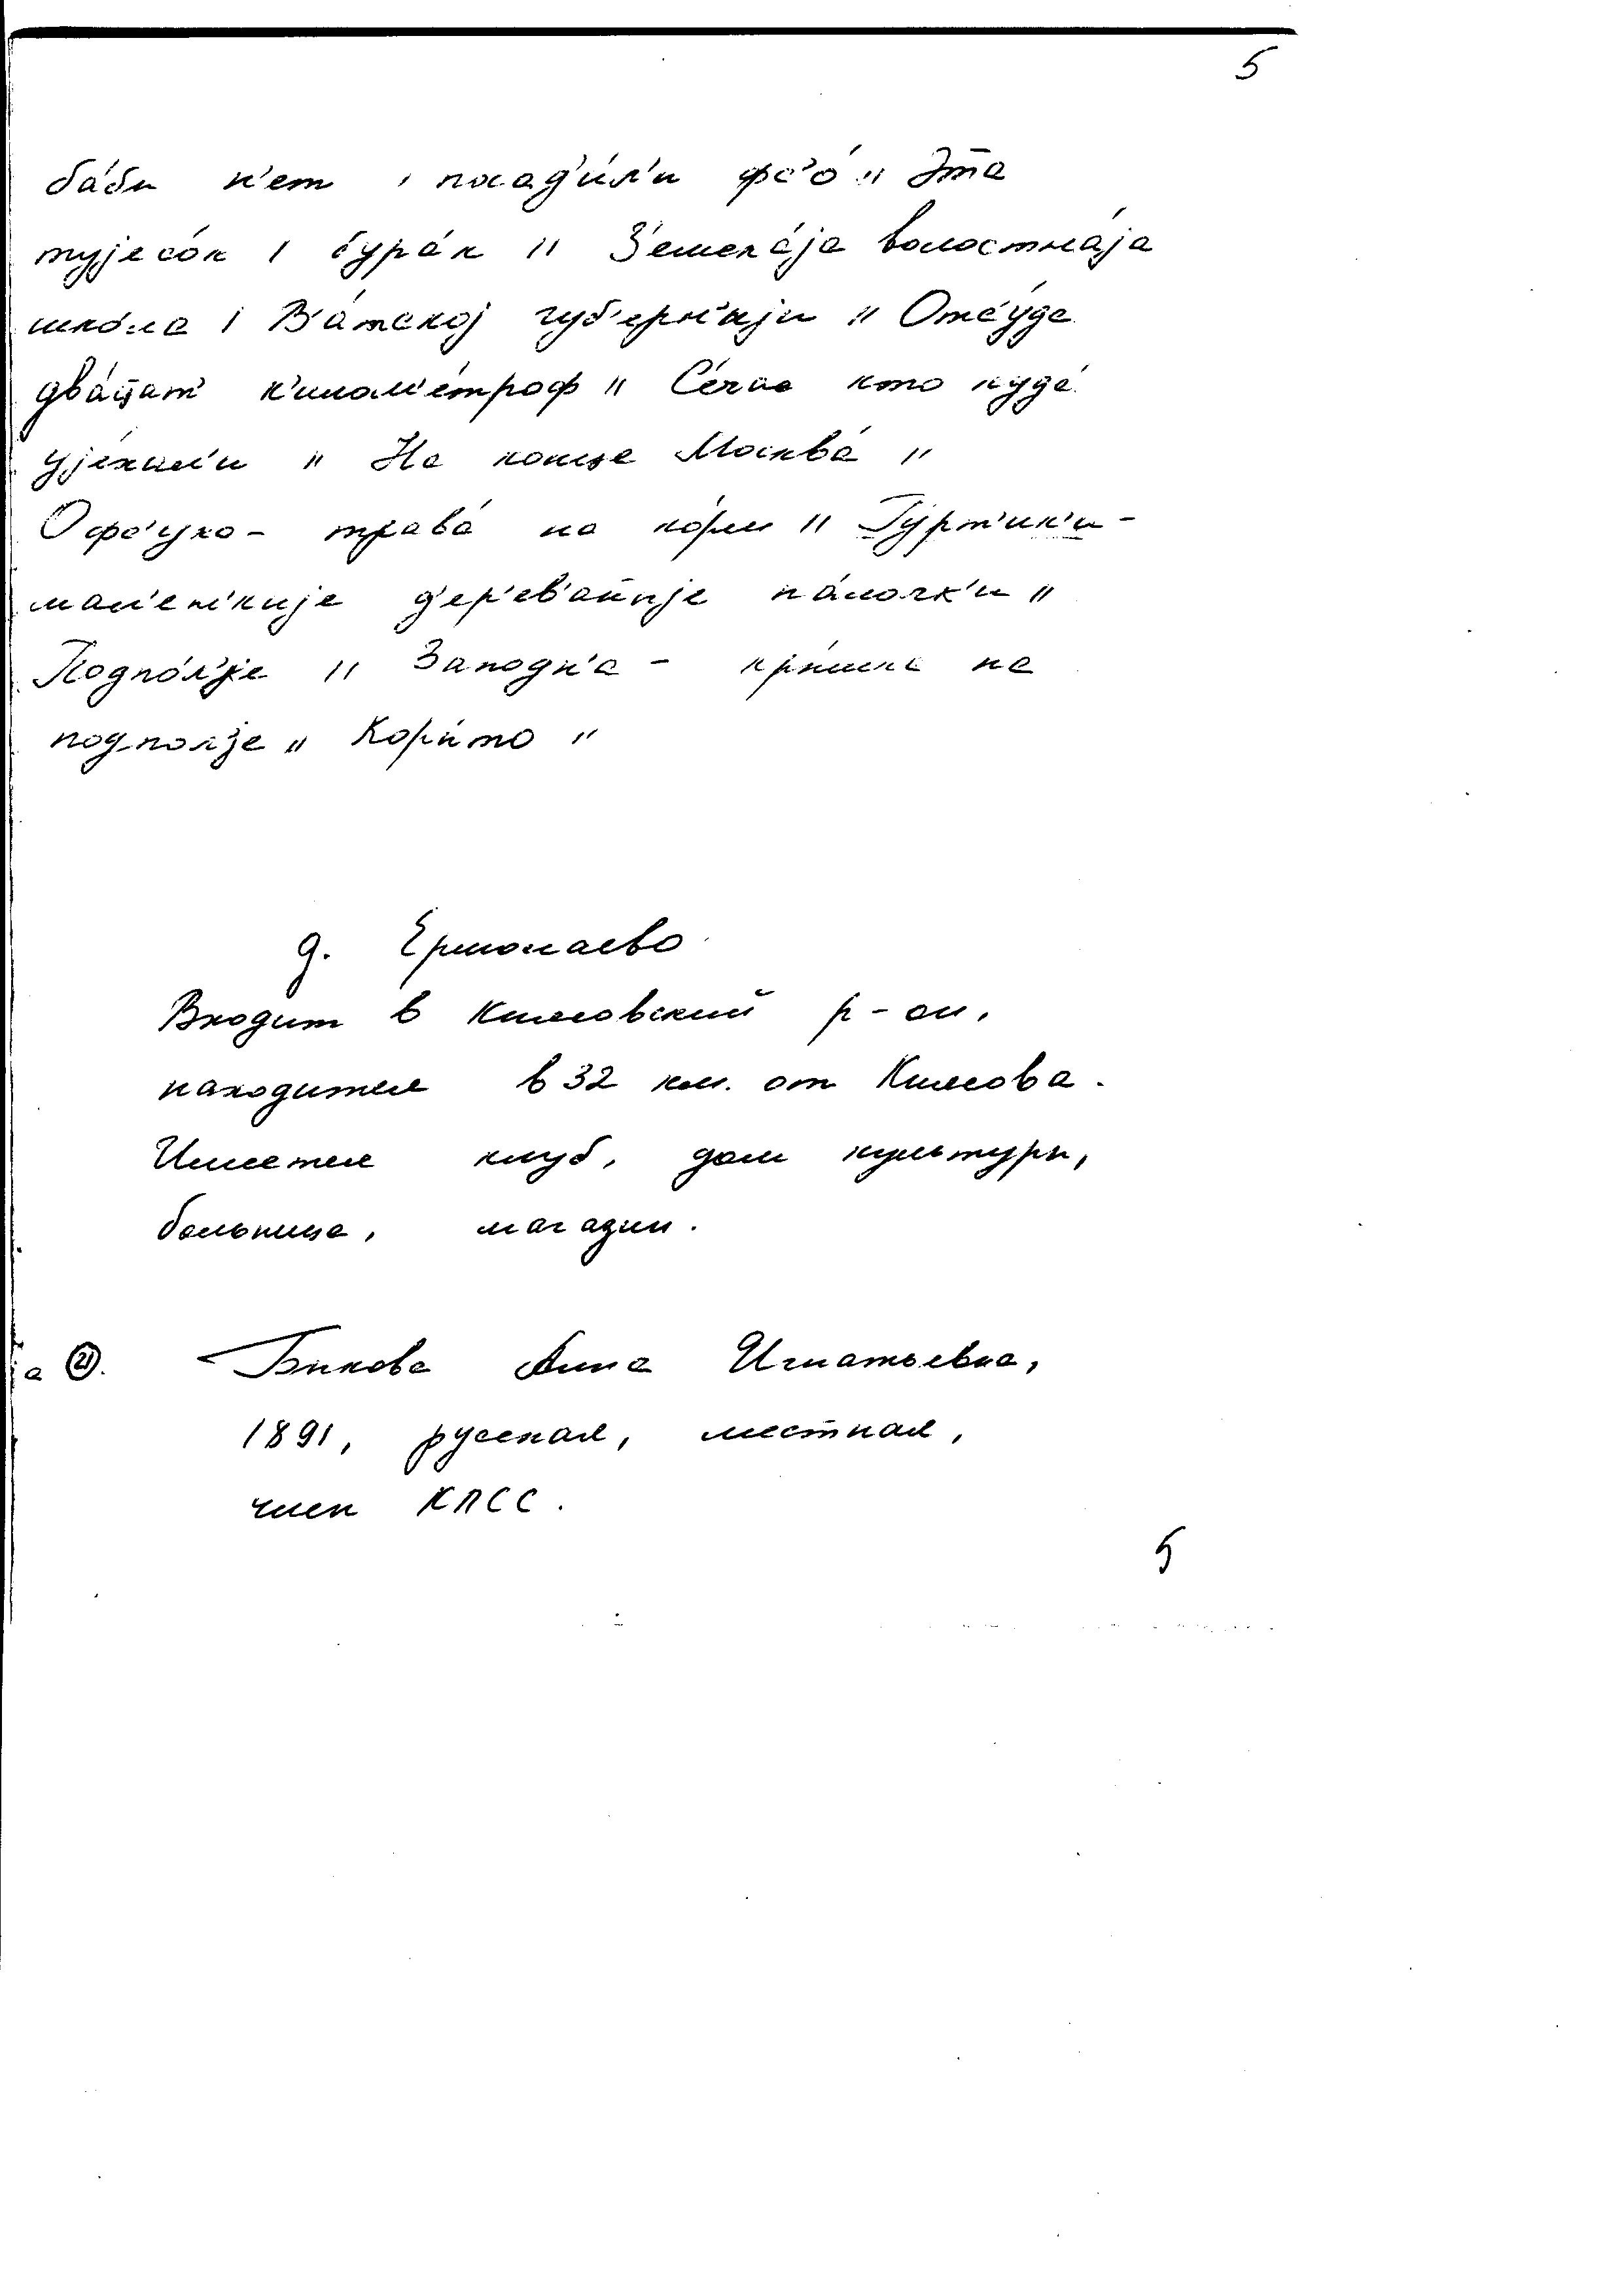 5
ба́бы н'ет / посад'и́л'и фс'о́ // Э́та
тујесо́к / бура́к // З'емска́ја волостна́ја
шко́ла / В'а́тској губ'е́рн'ији // Отс'у́да
два́цат' к'илом'е́троф // С'ечас кто куда́
ујéхал'и // На конце Москва́ //
Офс'ухо - трава́ на ко́рм // Гу́рт'ик'и -
мал'ен'кије д'ер'ев'а́ныје па́лочк'и //
Подпо́л'је // Заподн'а - кры́шка на
подпол'је // Коры́то //
д. Ермолаево
Входит в Килмезский р-он,
находится в 32 км. от Килмези.
Имется клуб, дом культуры,
больница, магазин.
а 21. Быкова Анна Игнатьевна,
1891, русская, местная,
член КПСС.
5